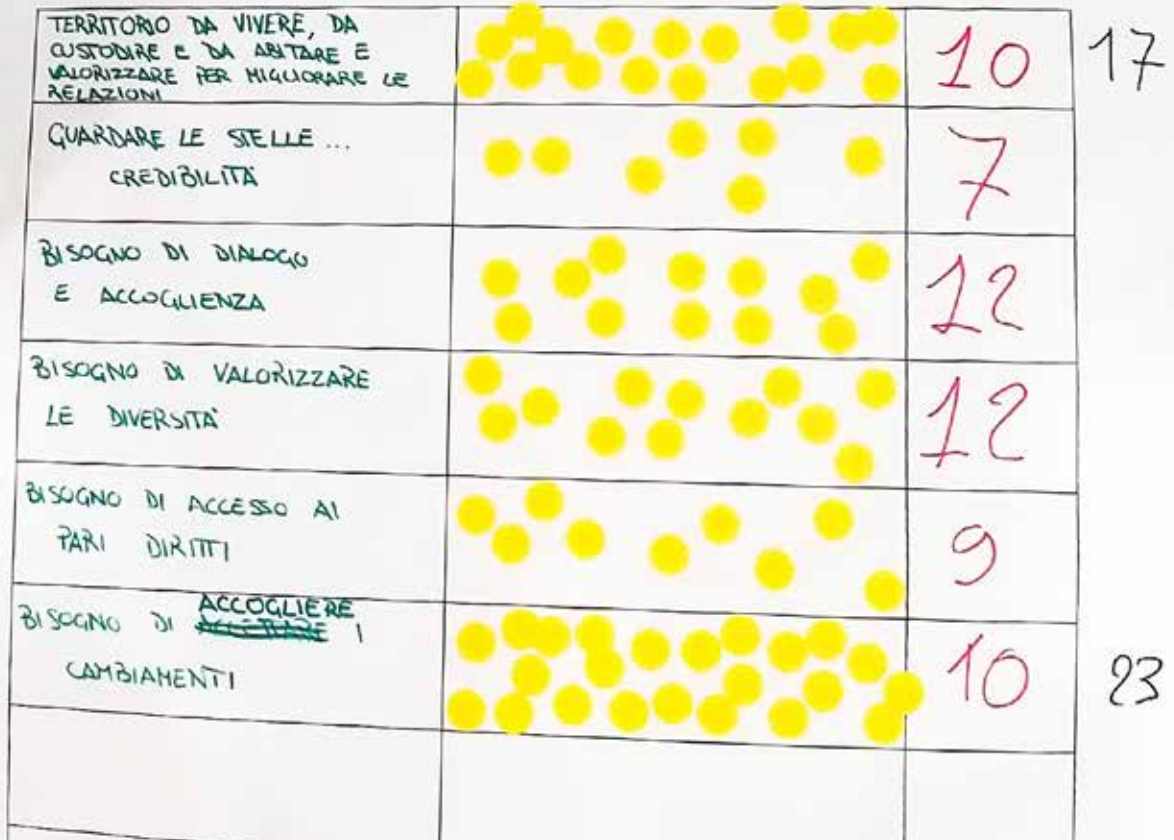 TERRITORIO DA VIVERE, DA
CUSTODIRE E DA ABITARE E
VALORIZZARE PER MIGLIORARE LE
RELAZIONI
10
17
GUARDARE LE STELLE...
CREDIBILITÀ
7
BISOGNO DI DIALOGO
E ACCOGLIENZA
12
BISOGNO DI VALORIZZARE
LE DIVERSITÀ
12
BISOGNO DI ACCESSO AI
PARI DIRITTI
9
ACCOGLIERE
BISOGNO DI ACCETTARE I
CAMBIAMENTI
10
23